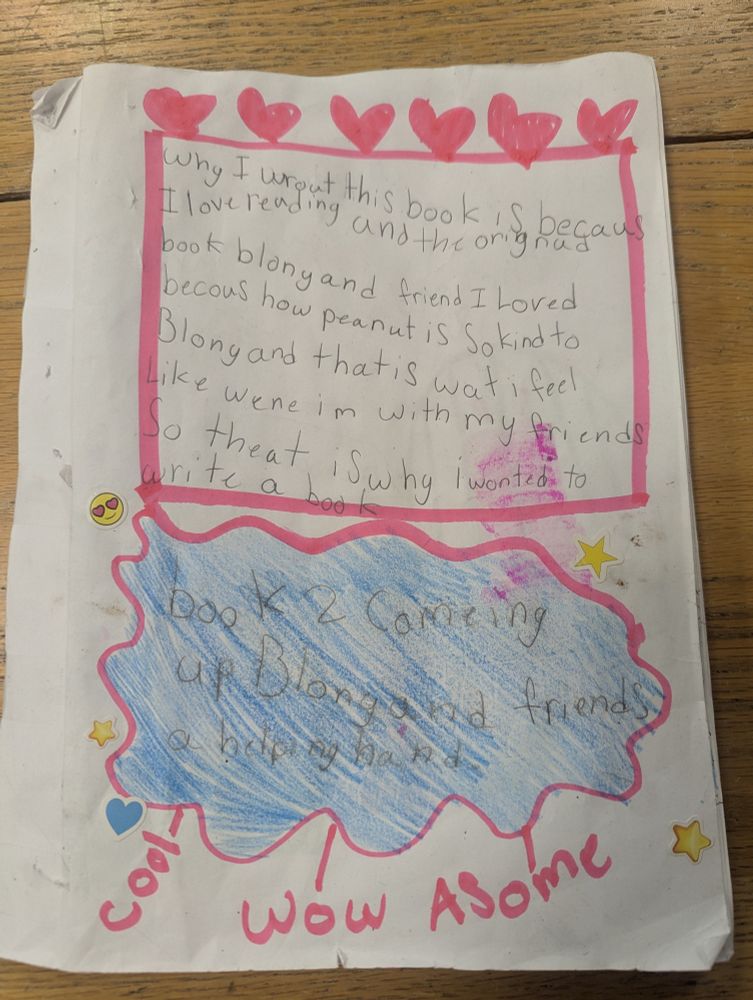 why I wrout this book is becaus
I love reading and the orignad
book blong and friend I Loved
becous how peanut is so kind to
Blong and that is wat i feel
Like wene im with my friends
So theat is why i wonted to
write a book
book 2 Comeing
up Blong and friends
a helping hand.
Cool
WOW ASOME